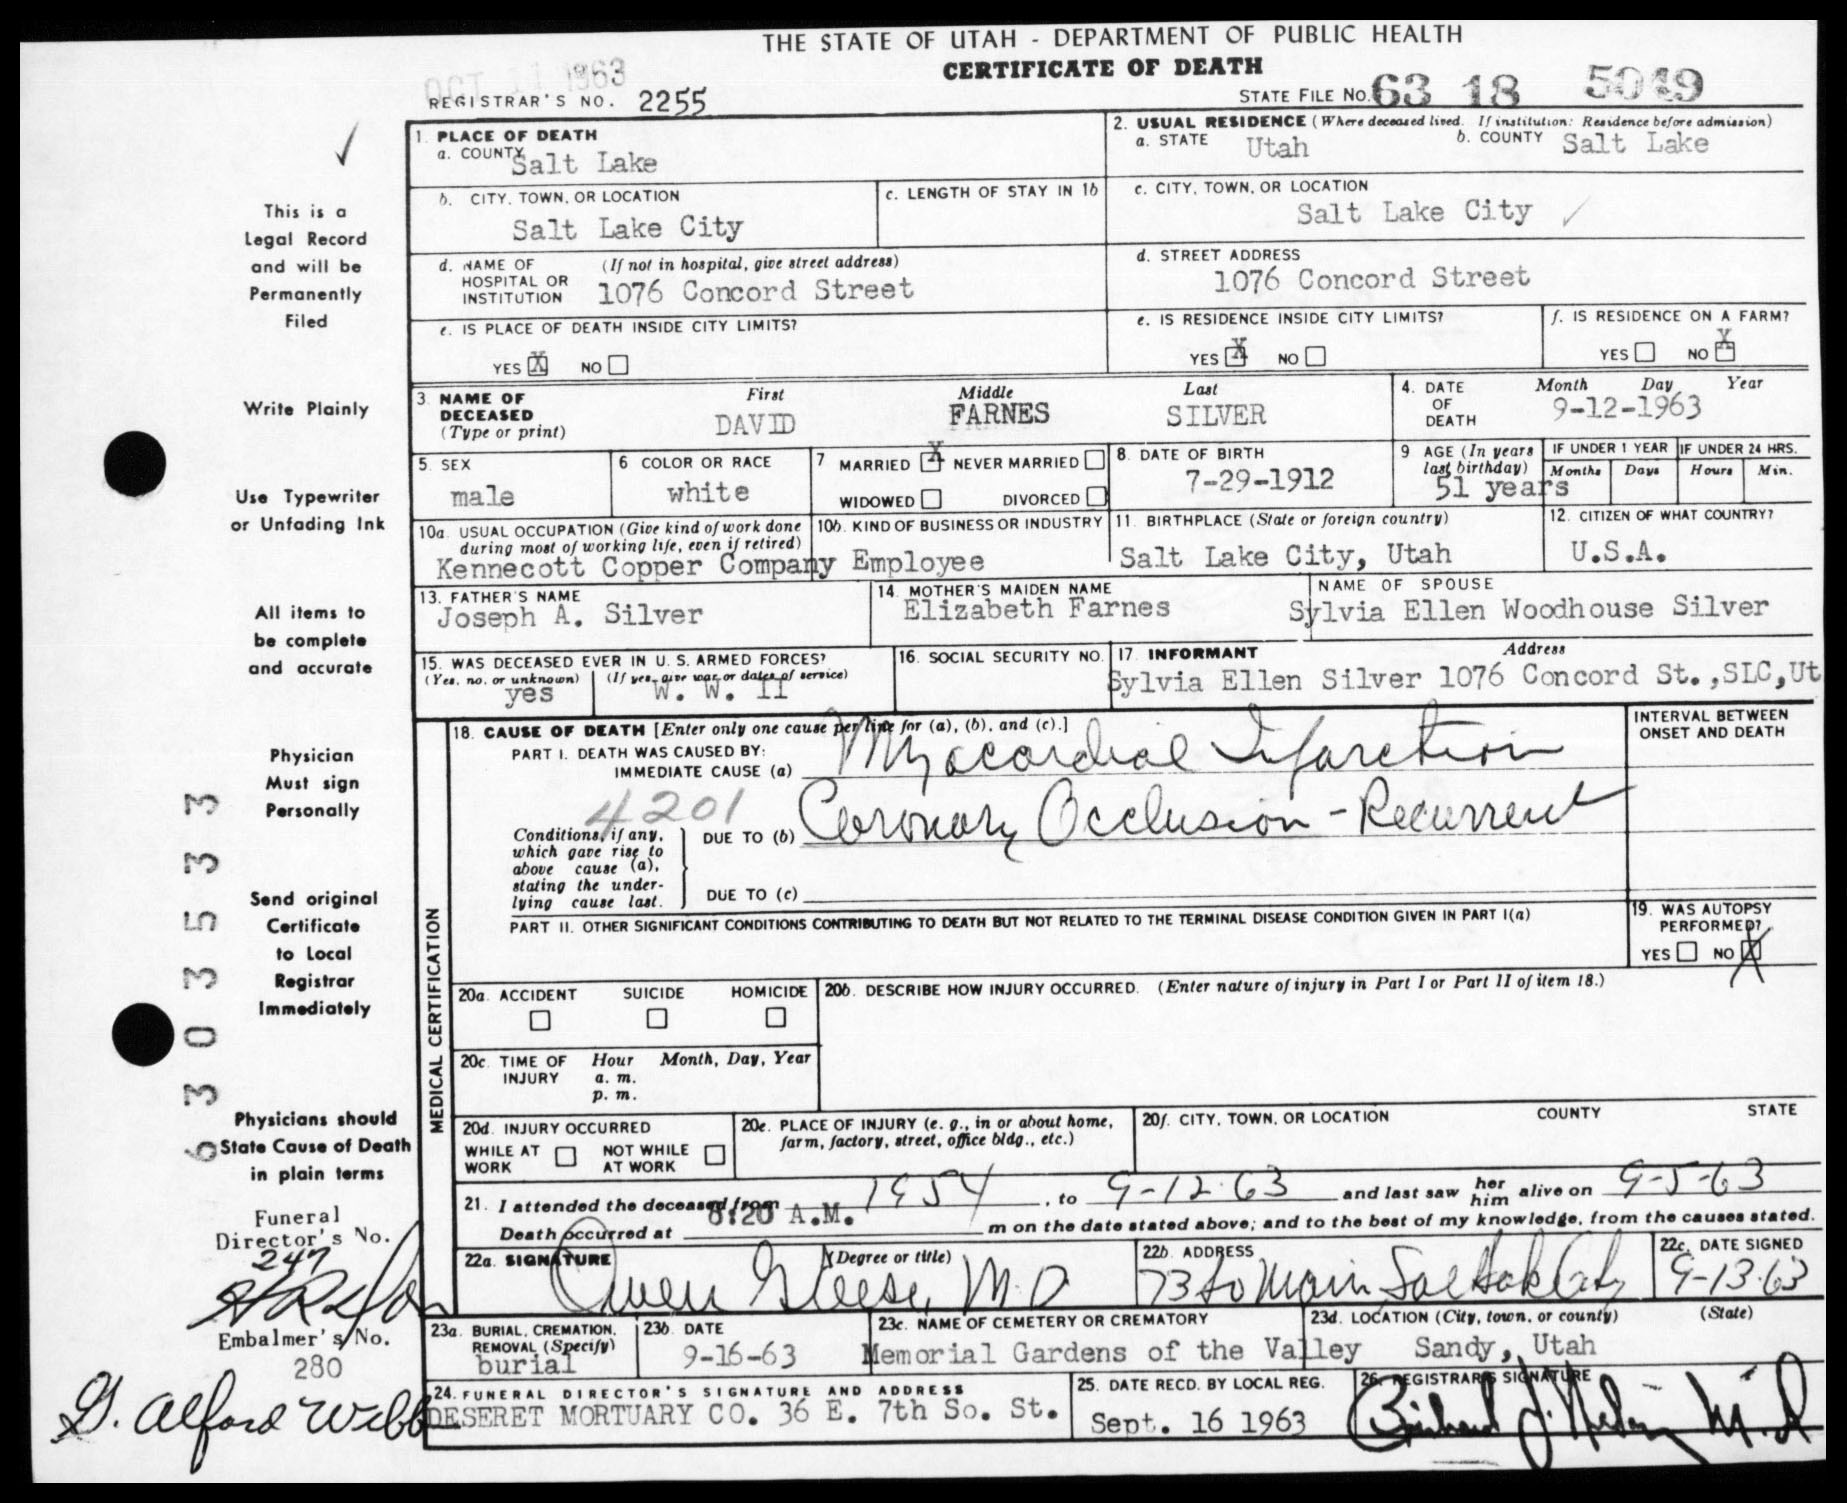 THE STATE OF UTAH - DEPARTMENT OF PUBLIC HEALTH
CERTIFICATE OF DEATH
OCT 11 1963
REGISTRAR'S NO. 2255
STATE FILE NO. 63 18 5049
This is a
Legal Record
and will be
Permanently
Filed
Write Plainly
Use Typewriter
or Unfading Ink
All items to
be complete
and accurate
Physician
Must sign
Personally
Send original
Certificate
to Local
Registrar
Immediately
Physicians should
State Cause of Death
in plain terms
Funeral
Director's No.
247
Embalmer's No.
280
G. Alford Webb
6303533
1. PLACE OF DEATH
a. COUNTY Salt Lake
b. CITY, TOWN, OR LOCATION
Salt Lake City
c. LENGTH OF STAY IN 1b
d. NAME OF HOSPITAL OR INSTITUTION (If not in hospital, give street address)
1076 Concord Street
e. IS PLACE OF DEATH INSIDE CITY LIMITS?
YES X NO
2. USUAL RESIDENCE (Where deceased lived. If institution: Residence before admission)
a. STATE Utah b. COUNTY Salt Lake
c. CITY, TOWN, OR LOCATION
Salt Lake City
d. STREET ADDRESS
1076 Concord Street
e. IS RESIDENCE INSIDE CITY LIMITS?
YES X NO
f. IS RESIDENCE ON A FARM?
YES NO X
3. NAME OF DECEASED (Type or print)
First Middle Last
DAVID FARNES SILVER
4. DATE OF DEATH Month Day Year
9-12-1963
5. SEX
male
6 COLOR OR RACE
white
7 MARRIED X NEVER MARRIED
WIDOWED DIVORCED
8. DATE OF BIRTH
7-29-1912
9 AGE (In years last birthday)
51 years
IF UNDER 1 YEAR IF UNDER 24 HRS.
Months Days Hours Min.
10a. USUAL OCCUPATION (Give kind of work done during most of working life, even if retired)
10b. KIND OF BUSINESS OR INDUSTRY
Kennecott Copper Company Employee
11. BIRTHPLACE (State or foreign country)
Salt Lake City, Utah
12. CITIZEN OF WHAT COUNTRY?
U.S.A.
13. FATHER'S NAME
Joseph A. Silver
14. MOTHER'S MAIDEN NAME
Elizabeth Farnes
NAME OF SPOUSE
Sylvia Ellen Woodhouse Silver
15. WAS DECEASED EVER IN U. S. ARMED FORCES?
(Yes, no, or unknown) (If yes, give war or dates of service)
yes W. W. II
16. SOCIAL SECURITY NO.
17. INFORMANT Address
Sylvia Ellen Silver 1076 Concord St.,SLC,Ut
MEDICAL CERTIFICATION
18. CAUSE OF DEATH [Enter only one cause per line for (a), (b), and (c).]
PART I. DEATH WAS CAUSED BY:
IMMEDIATE CAUSE (a) Myocardial Infarction
4201
Conditions, if any, which gave rise to above cause (a), stating the underlying cause last.
DUE TO (b) Coronary Occlusion - Recurrent
DUE TO (c)
INTERVAL BETWEEN ONSET AND DEATH
PART II. OTHER SIGNIFICANT CONDITIONS CONTRIBUTING TO DEATH BUT NOT RELATED TO THE TERMINAL DISEASE CONDITION GIVEN IN PART I(a)
19. WAS AUTOPSY PERFORMED?
YES NO X
20a. ACCIDENT SUICIDE HOMICIDE
20b. DESCRIBE HOW INJURY OCCURRED. (Enter nature of injury in Part I or Part II of item 18.)
20c. TIME OF INJURY Hour Month, Day, Year
a. m.
p. m.
20d. INJURY OCCURRED
WHILE AT WORK NOT WHILE AT WORK
20e. PLACE OF INJURY (e. g., in or about home, farm, factory, street, office bldg., etc.)
20f. CITY, TOWN, OR LOCATION COUNTY STATE
21. I attended the deceased from 1954, to 9-12-63 and last saw her him alive on 9-5-63
Death occurred at 8:20 A.M. m on the date stated above; and to the best of my knowledge, from the causes stated.
22a. SIGNATURE (Degree or title)
Owen G Reese, M.D
22b. ADDRESS
73 So Main Salt Lake City
22c. DATE SIGNED
9-13-63
23a. BURIAL, CREMATION, REMOVAL (Specify)
burial
23b. DATE
9-16-63
23c. NAME OF CEMETERY OR CREMATORY
Memorial Gardens of the Valley
23d. LOCATION (City, town, or county) (State)
Sandy, Utah
24. FUNERAL DIRECTOR'S SIGNATURE AND ADDRESS
DESERET MORTUARY CO. 36 E. 7th So. St.
25. DATE RECD. BY LOCAL REG.
Sept. 16 1963
26. REGISTRAR'S SIGNATURE